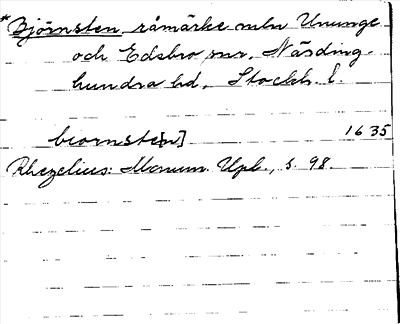 *Björnsten, råmärke mln Ununge
och Edsbro snr, Näsding-
hundra hd, Stockh. l.
beornste[n] 1635
Rhezelius: Monum. Upl., s. 98.